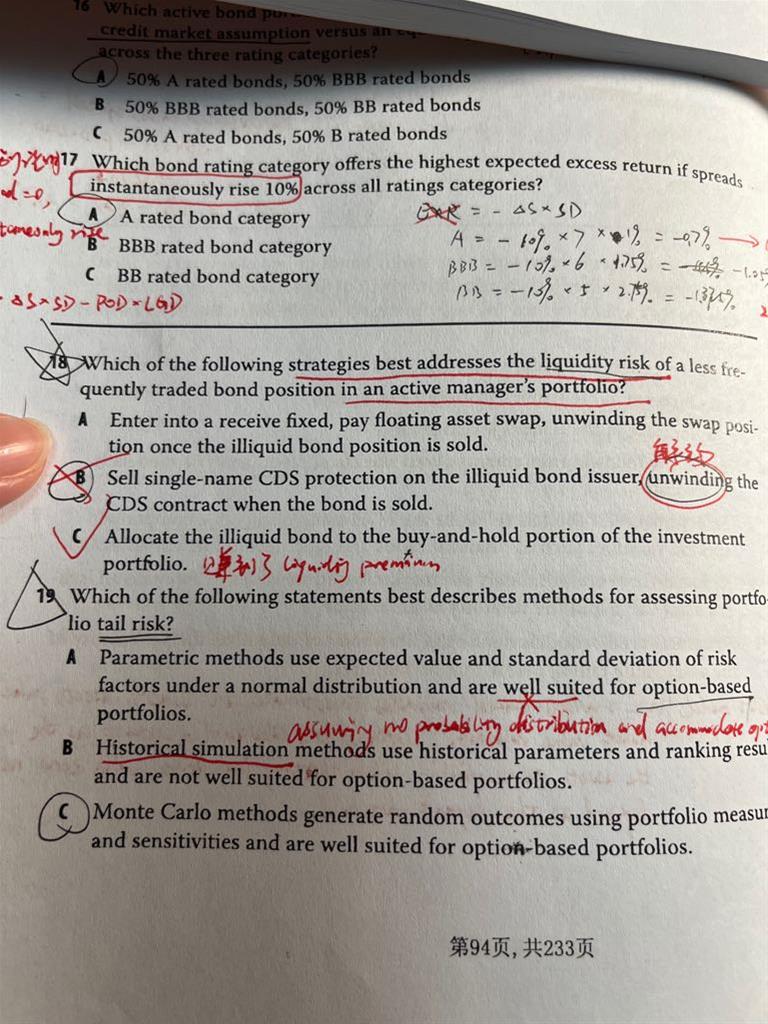 16 Which active bond
credit market assumption versus an
across the three rating categories?
A 50% A rated bonds, 50% BBB rated bonds
B 50% BBB rated bonds, 50% BB rated bonds
C 50% A rated bonds, 50% B rated bonds
17 Which bond rating category offers the highest expected excess return if spreads
instantaneously rise 10% across all ratings categories?
= - ΔS × SD
A A rated bond category
A = - 10% × 7 × 1% = -0.7%
B BBB rated bond category
BBB = -10% × 6 × 1.75% = -1.05%
C BB rated bond category
BB = -10% × 5 × 2.75% = -1.375%
ΔS × SD - POD × LGD
18 Which of the following strategies best addresses the liquidity risk of a less fre-
quently traded bond position in an active manager's portfolio?
A Enter into a receive fixed, pay floating asset swap, unwinding the swap posi-
tion once the illiquid bond position is sold.
B Sell single-name CDS protection on the illiquid bond issuer, unwinding the
CDS contract when the bond is sold.
C Allocate the illiquid bond to the buy-and-hold portion of the investment
portfolio. liquidity premium
19 Which of the following statements best describes methods for assessing portfo-
lio tail risk?
A Parametric methods use expected value and standard deviation of risk
factors under a normal distribution and are well suited for option-based
portfolios.
assuming no probability distribution and accommodate
B Historical simulation methods use historical parameters and ranking
and are not well suited for option-based portfolios.
C Monte Carlo methods generate random outcomes using portfolio
and sensitivities and are well suited for option-based portfolios.
第94页, 共233页